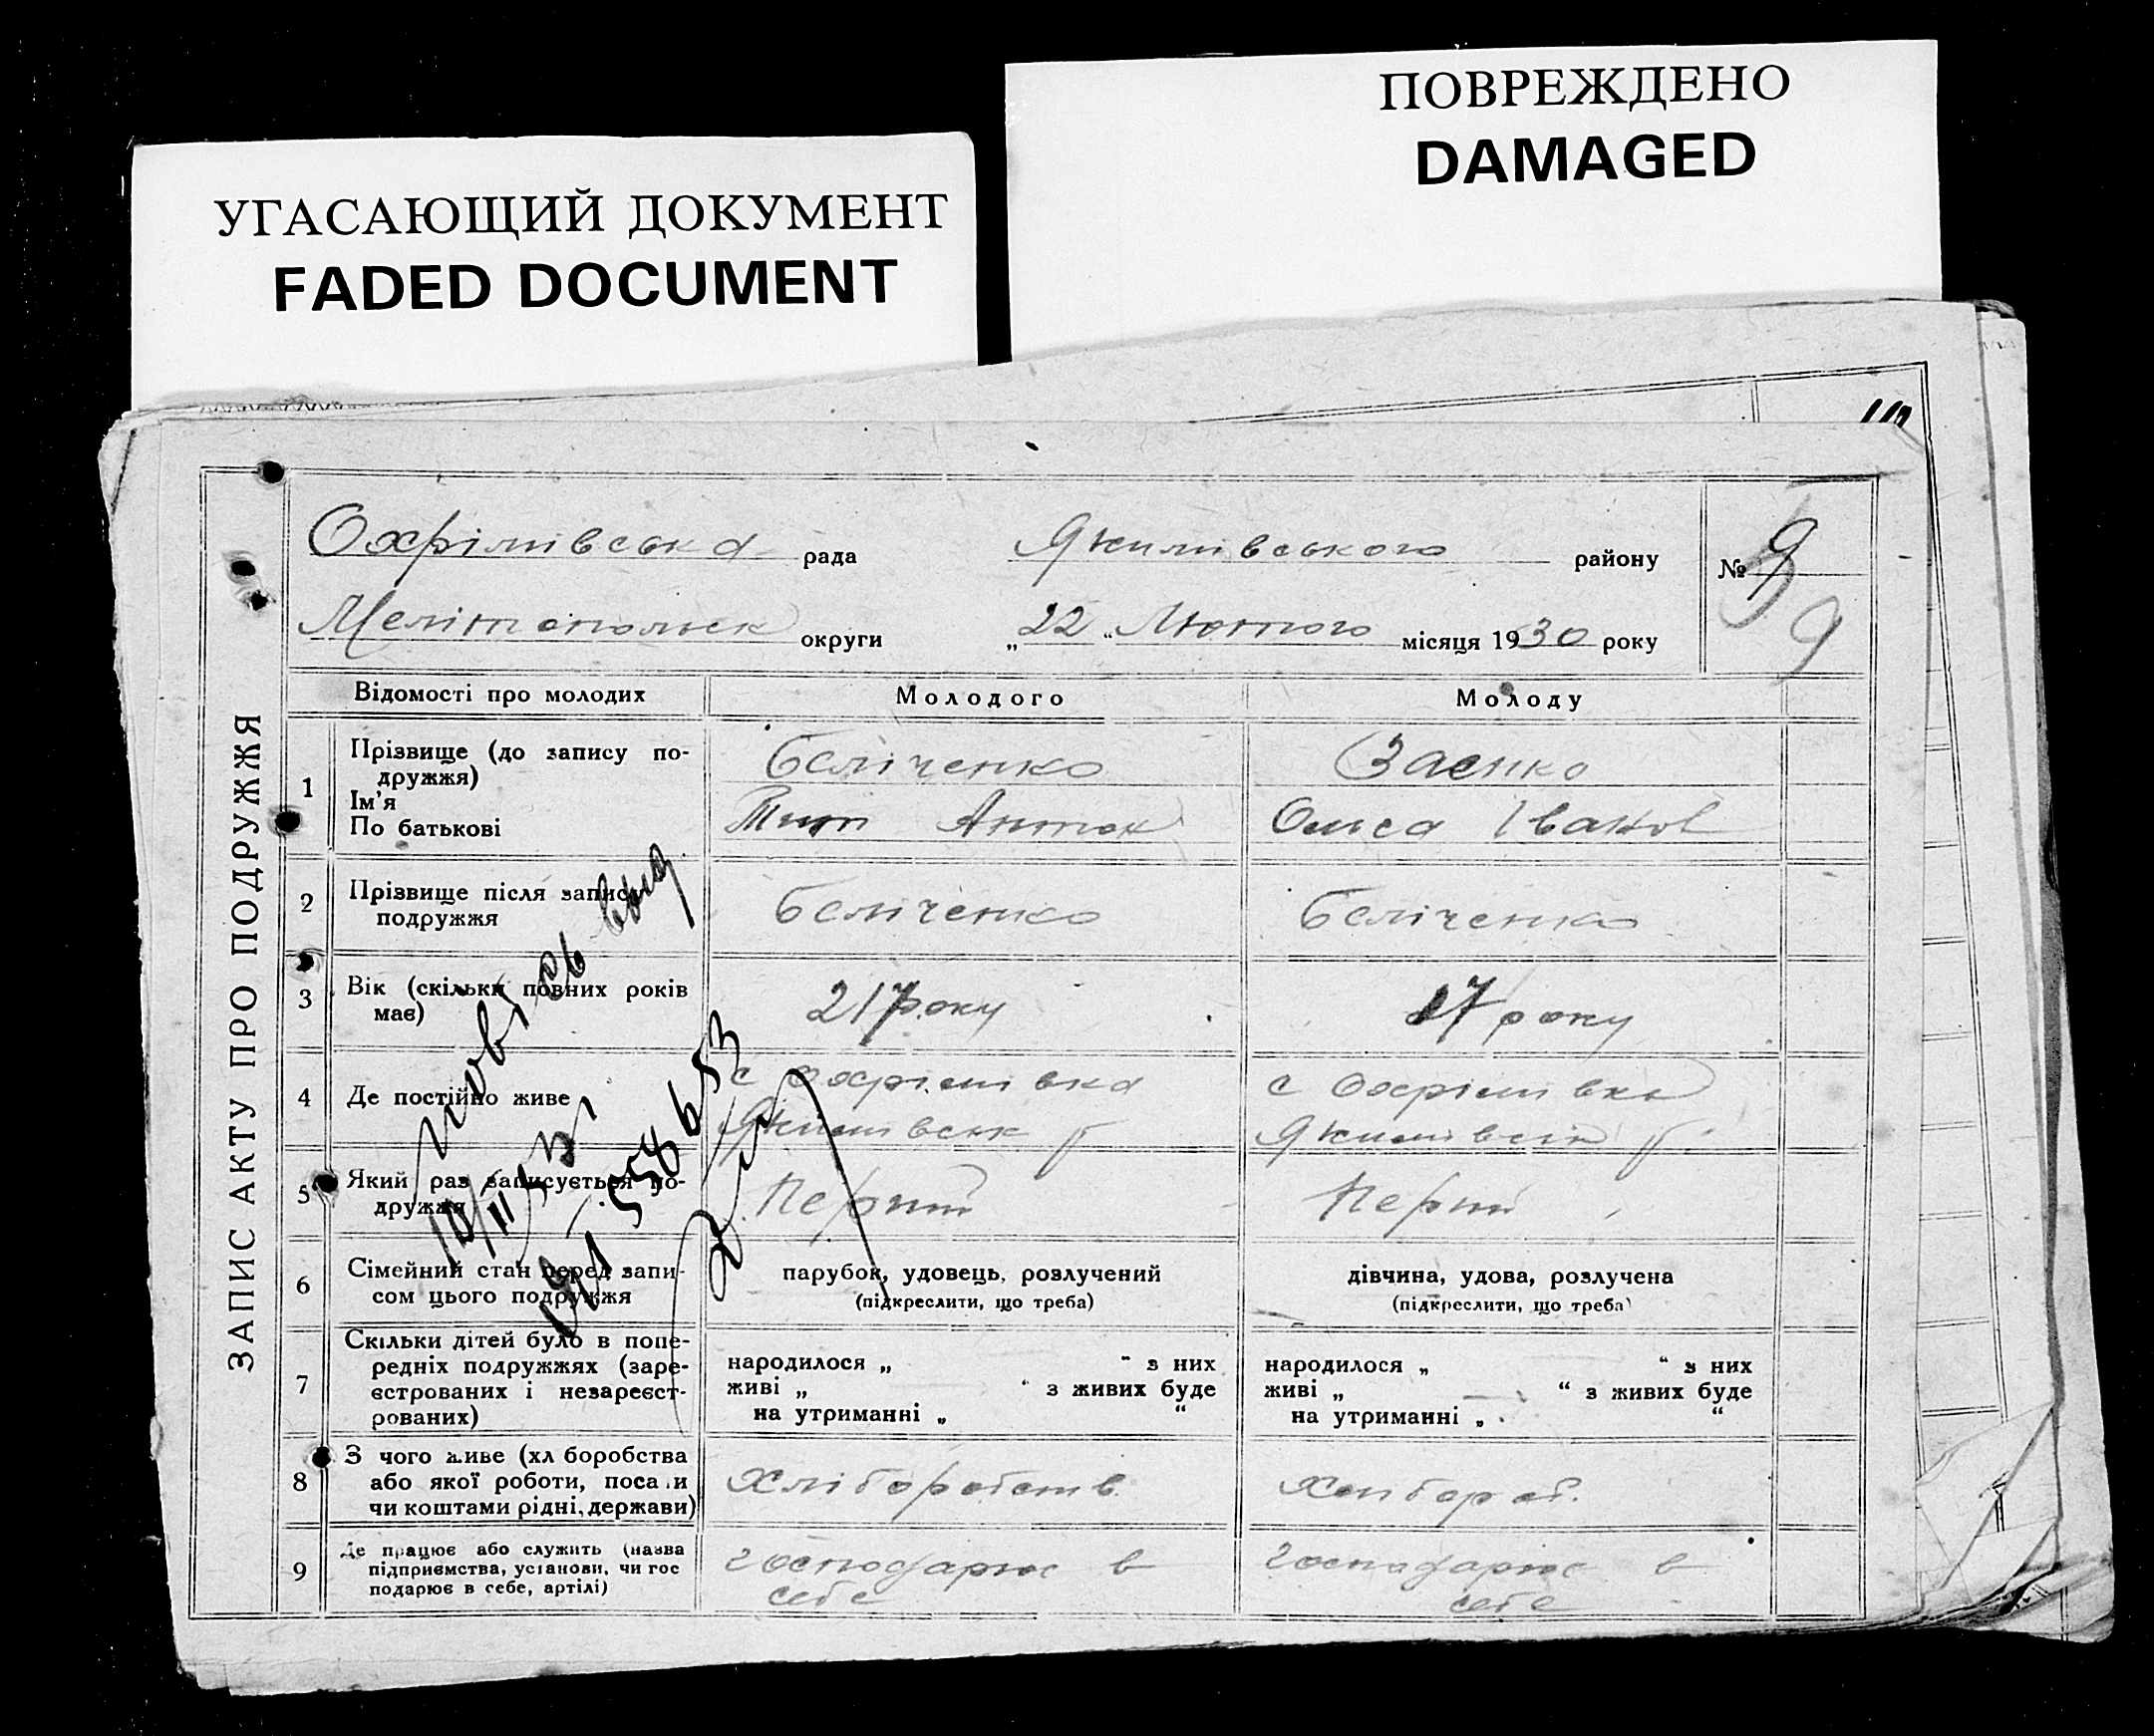 УГАСАЮЩИЙ ДОКУМЕНТ
FADED DOCUMENT
ПОВРЕЖДЕНО
DAMAGED
ЗАПИС АКТУ ПРО ПОДРУЖЖЯ
Охрімівська рада Якимівського району № 9
9
Мелітопольск округи „22" Лютого місяця 1930 року
Відомості про молодих Молодого Молоду
1 Прізвище (до запису по-
дружжя)
Ім'я
По батькові
Беліченко Заенко
Тит Антон Олиса Іванов
2 Прізвище після запису
подружжя
Беліченко Беліченко
3 Вік (скільки повних років
має)
21 року 17 року
4 Де постійно живе
с Охрімівка
Якимівськ р
с Охрімівка
Якимівськ р.
5 Який раз записується по-
дружжя
Перший Перши
6 Сімейний стан перед запи-
сом цього подружжя
парубок, удовець, розлучений
(підкреслити, що треба)
дівчина, удова, розлучена
(підкреслити, що треба)
7 Скільки дітей було в попе-
редніх подружжях (заре-
єстрованих і незареєст-
рованих)
народилося „ " з них
живі „ " з живих буде
на утриманні „ "
народилося „ " з них
живі „ " з живих буде
на утриманні „ "
8 З чого живе (хл боробства
або якої роботи, поса и
чи коштами рідні, держави)
Хліборобств. Хлібороб.
9 Де працює або служить (назва
підприємства, установи, чи гос
подарює в себе, артілі)
господарює в
себе
господарює в
себе
10/II 51
558653